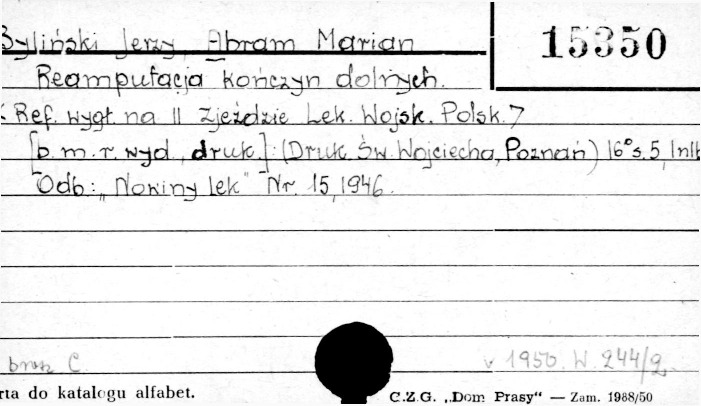 Byliński Jerzy Abram Marian
15350
Reamputacja kończyn dolnych.
< Ref. wygł. na II Zjeździe Lek. Wojsk. Polsk. 7
[b. m. r. wyd., druk.] (Druk. Św. Wojciecha, Poznań) 16° s. 5, 1nlb
Odb.: „Nowiny lek" Nr. 15, 1946.
brosz C.
v 1950. W. 244/2.
rta do katalogu alfabet.
C.Z.G. „Dom Prasy“ — Zam. 1988/50